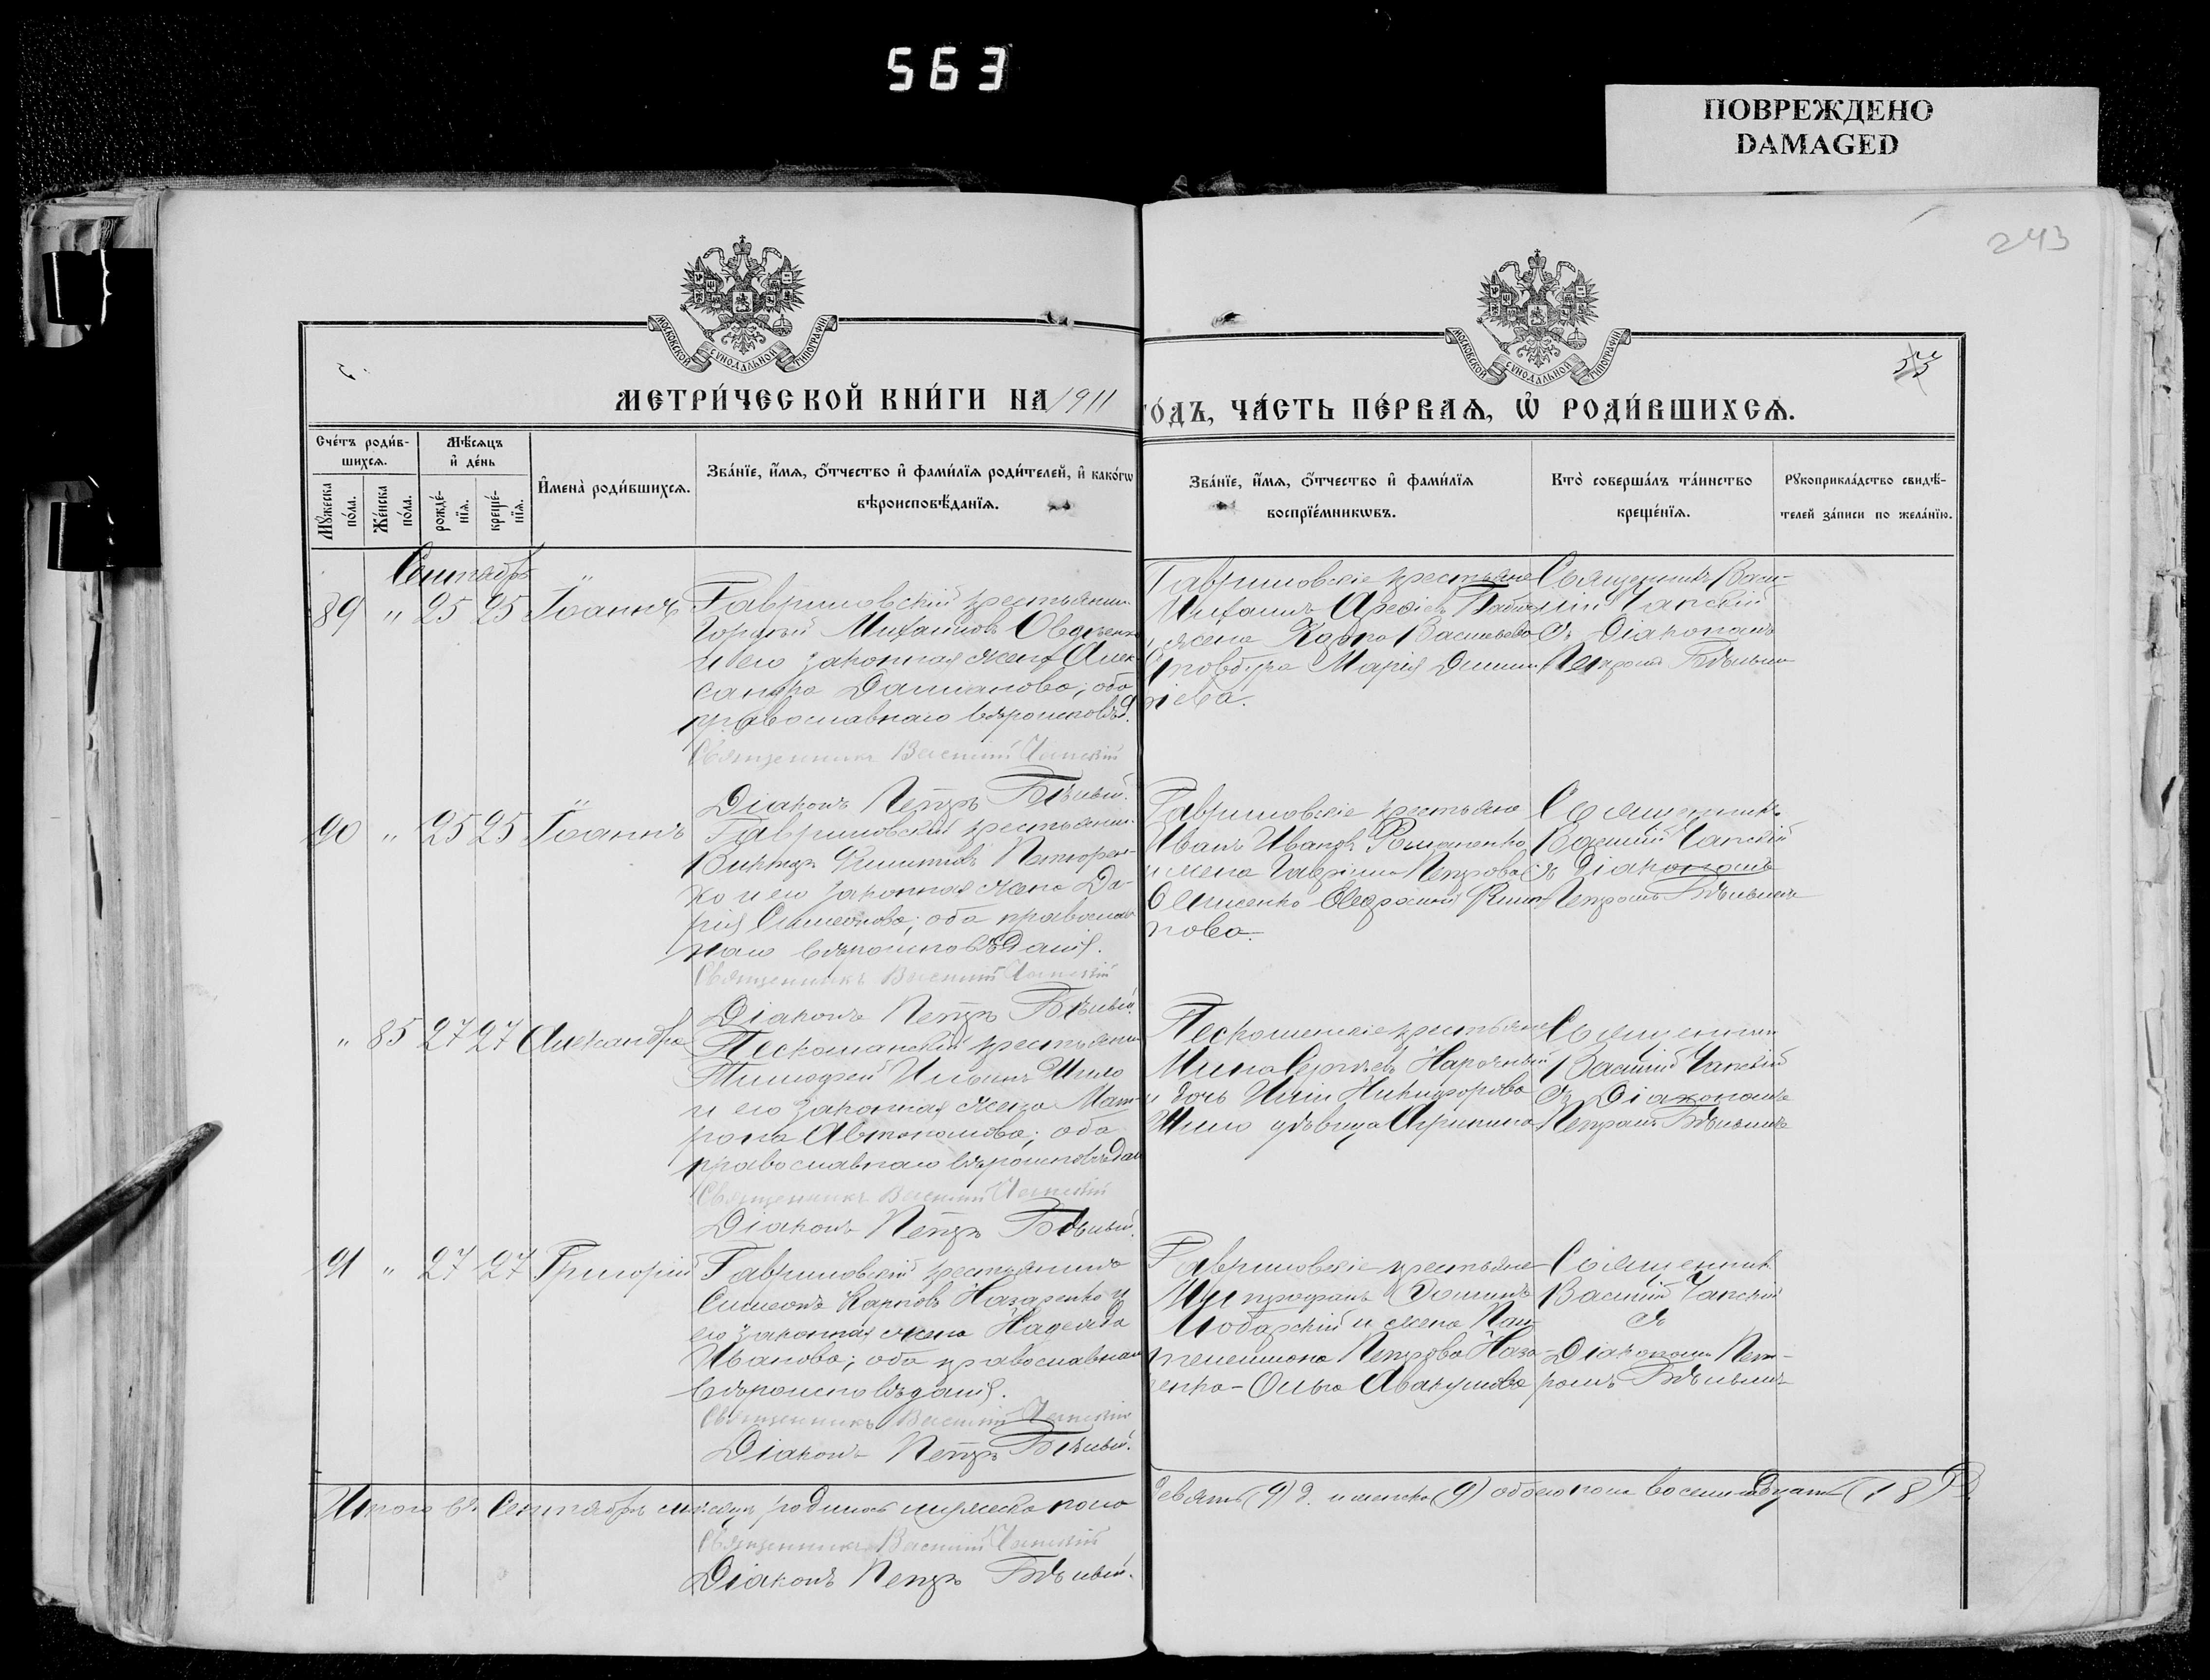 563
ПОВРЕЖДЕНО
DAMAGED
243
МОСКОВСКОЙ СѴНОДАЛЬНОЙ ТИПОГРАФІИ
МОСКОВСКОЙ СѴНОДАЛЬНОЙ ТИПОГРАФІИ
МЕТРИ́ЧЕСКОЙ КНИ́ГИ НА 1911
ГО́ДЪ, ЧА́СТЬ ПЕ́РВАѦ, Ѡ҆ РОДИ́ВШИХСѦ.
Сче́тъ роди́в-
шихсѧ.
Мꙋ́жеска
по́ла.
Же́нска
по́ла.
Мѣ́сѧцъ
и҆ де́нь
рожде́-
нїѧ.
креще́-
нїѧ.
И҆мена̀ роди́вшихсѧ.
Зва́нїе, и҆́мѧ, ѻ҆́тчество и҆ фами́лїѧ роди́телей, и҆ како́гѡ
вѣроисповѣ́данїѧ.
Зва́нїе, и҆́мѧ, ѻ҆́тчество и҆ фами́лїѧ
воспрїе́мникѡвъ.
Кто̀ соверша́лъ та́инство
креще́нїѧ.
Рꙋкоприкла́дство свидѣ́-
телей за́писи по жела́нїю.
Сентябрь
89 " 25 25 Іоаннъ
Гавриловскій крестьянин
Михаиловъ
и его законная жена Алек-
сандра Даміанова; оба
православнаго вѣроисповѣд.
Священникъ Василій Чапскій
Діаконъ Петръ Бѣлый.
Гавриловскіе крестьяне
Михаилъ
и жена Карпа Васильева
Марія Димит
ріева.
Священникъ Васи-
лій Чапскій
съ Діакономъ
Петромъ Бѣлымъ
90 " 25 25 Іоаннъ
Гавриловскій крестьянин
Викторъ
ко и его законная жена Да-
рія Симеонова; оба православ
наго вѣроисповѣданія.
Священникъ Василій Чапскій
Діаконъ Петръ Бѣлый.
Гавриловскіе крестьяне
Иванъ Ивановъ Романенко
и жена Гавріила Петрова
пова.
Священникъ
Василій Чапскій
съ Діакономъ
Петромъ Бѣлымъ
" 85 27 27 Александра
крестьянин
Тимофей Ильинъ Шило
и его законная жена Мат-
рона Автономова; оба
православнаго вѣроисповѣдан
Священникъ Василій Чапскій
Діаконъ Петръ Бѣлый.
крестьяне
Мина Сергѣевъ
и дочь Иліи Никифорова
Шило дѣвица Агрипина
Священникъ
Василій Чапскій
съ Діакономъ
Петромъ Бѣлымъ
91 " 27 27 Григорій
Гавриловскій крестьянинъ
Симеонъ Карповъ Назаренко и
его законная жена Надежда
Иванова; оба православнаго
вѣроисповѣданія.
Священникъ Василій Чапскій
Діаконъ Петръ Бѣлый.
Гавриловскіе крестьяне
Митрофанъ
и жена Пан-
телеимона Петрова Наза-
ренко - Ольга Аввакумова
Священникъ
Василій Чапскій
съ
Діакономъ Пет-
ромъ Бѣлымъ
Итого въ Сентябрѣ мѣсяцѣ родилось мужеска пола
девять (9) д. и женска (9) обоего пола восемнадцать (18) д.
Священникъ Василій Чапскій
Діаконъ Петръ Бѣлый.